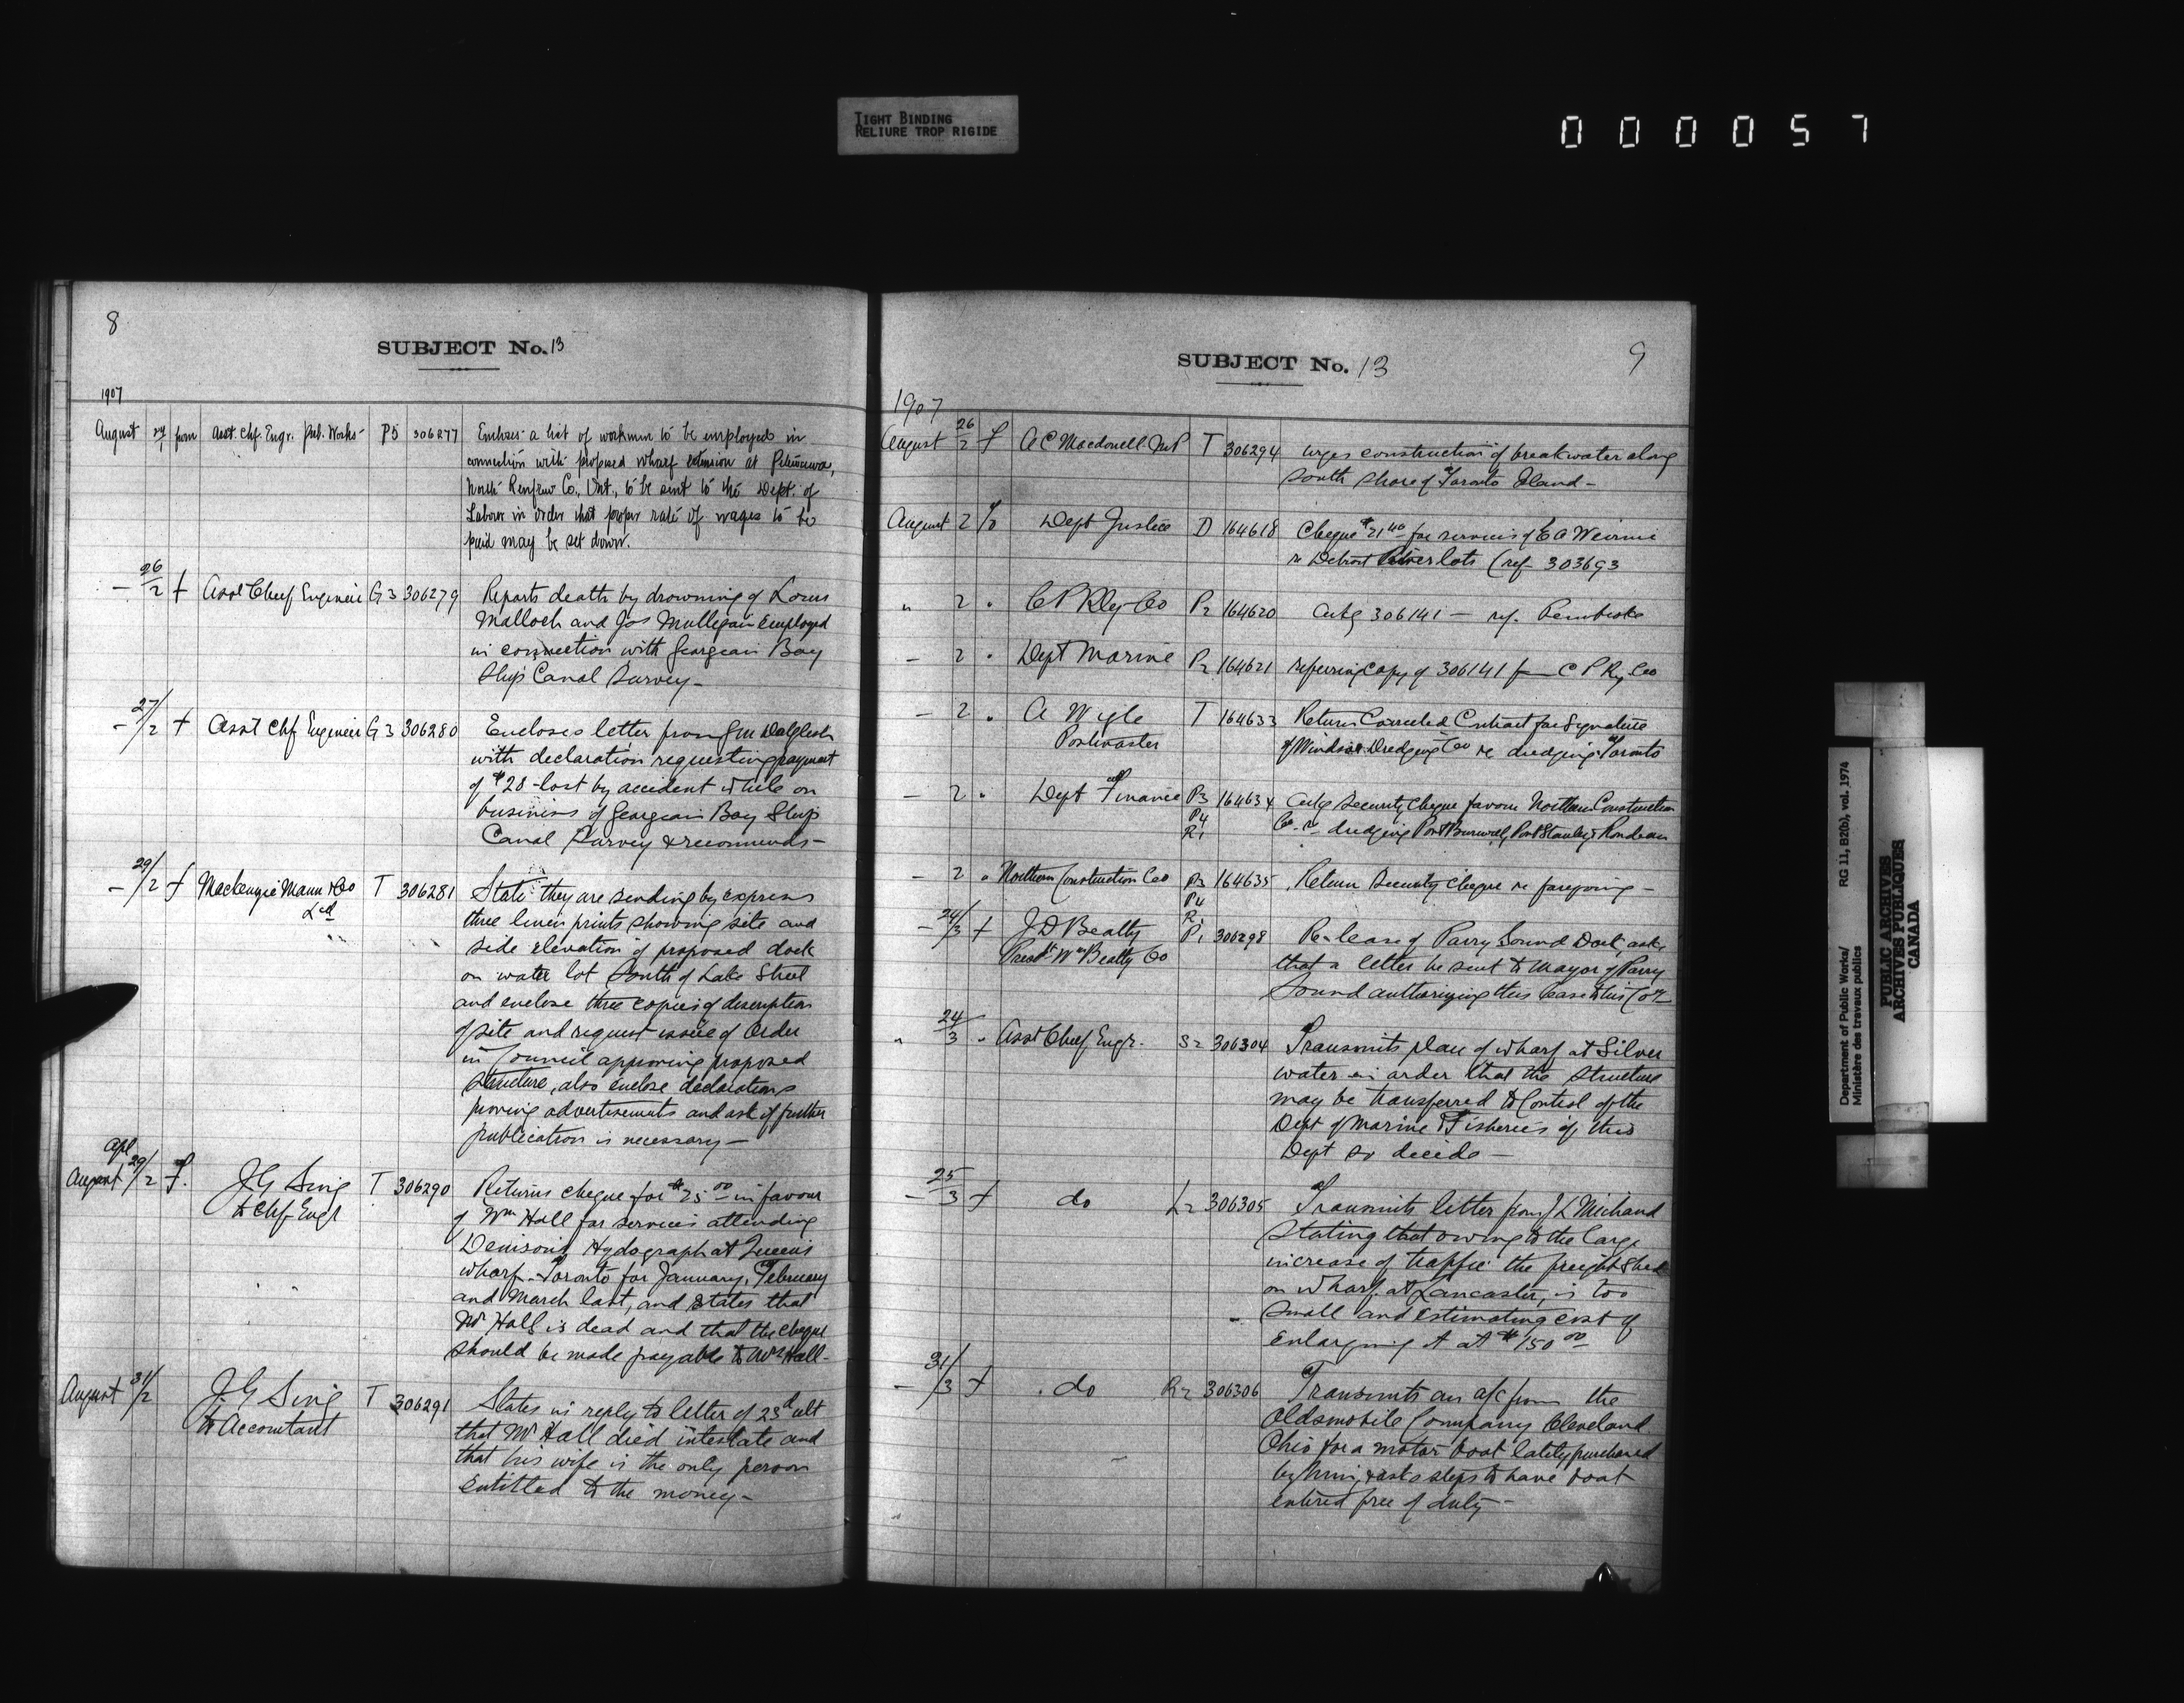 TIGHT BINDING
RELIURE TROP RIGIDE
000057
8
SUBJECT No. 13
1907
August 27/1 from Asst. Chf. Engr. Pub. Works- P5 306277 Encloses a list of workmen to be employed in
connection with proposed wharf extension at Petewawa,
North Renfrew Co., Ont., to be sent to the Dept. of
Labour in order that proper rate of wages to be
paid may be set down.
- 26/2 f Asst Chief Engineer G3 306279 Reports death by drowning of Lorus
Malloch and Jos Mulligan employed
in connection with Georgian Bay
Ship Canal Survey-
- 27/2 f Asst Chf Engineer G3 306280 Encloses letter from Dalglesh
with declaration requesting payment
of $28- lost by accident while on
business of Georgian Bay Ship
Canal Survey & recommends-
- 29/2 f Mackenzie Mann & Co T 306281 State they are sending by express
Ltd three linen prints showing site and
side elevation of proposed dock
on water lot South of Lake Street
and enclose three copies of description
of site and request issue of Order
in Council approving proposed
Structure, also enclose declarations
proving advertisements and ask if further
publication is necessary-
Apl
August 29/2 f. J G Sing T 306290 Returns cheque for $25 00 in favour
to Chf Engr of Wm Hall for services attending
Denison's Hydograph at Queen's
wharf - Toronto for January, February
and March last, and states that
Mr Hall is dead and that the cheque
should be made payable to Mrs Hall-
August 31/2 J. G Sing T 306291 States in reply to letter of 23d ult
to Accountant that Mr Hall died intestate and
that his wife is the only person
entitled to the money-
SUBJECT No. 13
9
1907
August 26/2 f A C Macdonell. M.P T 306294 Urges construction of breakwater along
South Shore of Toronto Island-
August 2 % Dept Justice D 164618 Cheque $21 40 for services of E A
re Detroit River lots (ref 303693
" 2 " C P Rly Co P2 164620 Ackg 306141 - ref. Pembroke
- 2 " Dept Marine P2 164621 referring copy of 306141 from C P Ry Co
- 2 " A Wigle T 164633 Return Corrected Contract for signature
Postmaster of Windsor Dredging Co re dredging Toronto
- 2 " Dept Finance P3 164634 Ackg Security Cheque favour Northern Construction
P4 Co. re dredging Port Burwell, Port Stanley & Rondeau
R1
- 2 " Northern Construction Co P3 164635 Return Security Cheque re foregoing -
P4
R1
- 24/3 f J D Beatty P1 306298 Re lease of Parry Sound Dock, asks
Presdt Wm Beatty Co that a letter be sent to Mayor of Parry
Sound authorizing this lease to his Coy
" 24/3 " Asst Chief Engr. S2 306304 Transmits plan of wharf at Silver
water in order that the structure
may be transferred to Control of the
Dept of Marine & Fisheries if this
Dept so decide -
- 25/3 f do L2 306305 Transmits letter from J L Michaud
Stating that owing to the large
increase of traffic the freight shed
on wharf at Lancaster, is too
small and estimating cost of
enlarging it at $150 00
- 31/3 f do R2 306306 Transmits an a/c from the
Oldsmobile Company Cleveland
Ohio for a motor boat lately purchased
by him, & asks steps to have boat
entered free of duty-
Department of Public Works/ RG 11, B2(b), vol. 1974
Ministère des travaux publics
PUBLIC ARCHIVES
ARCHIVES PUBLIQUES
CANADA